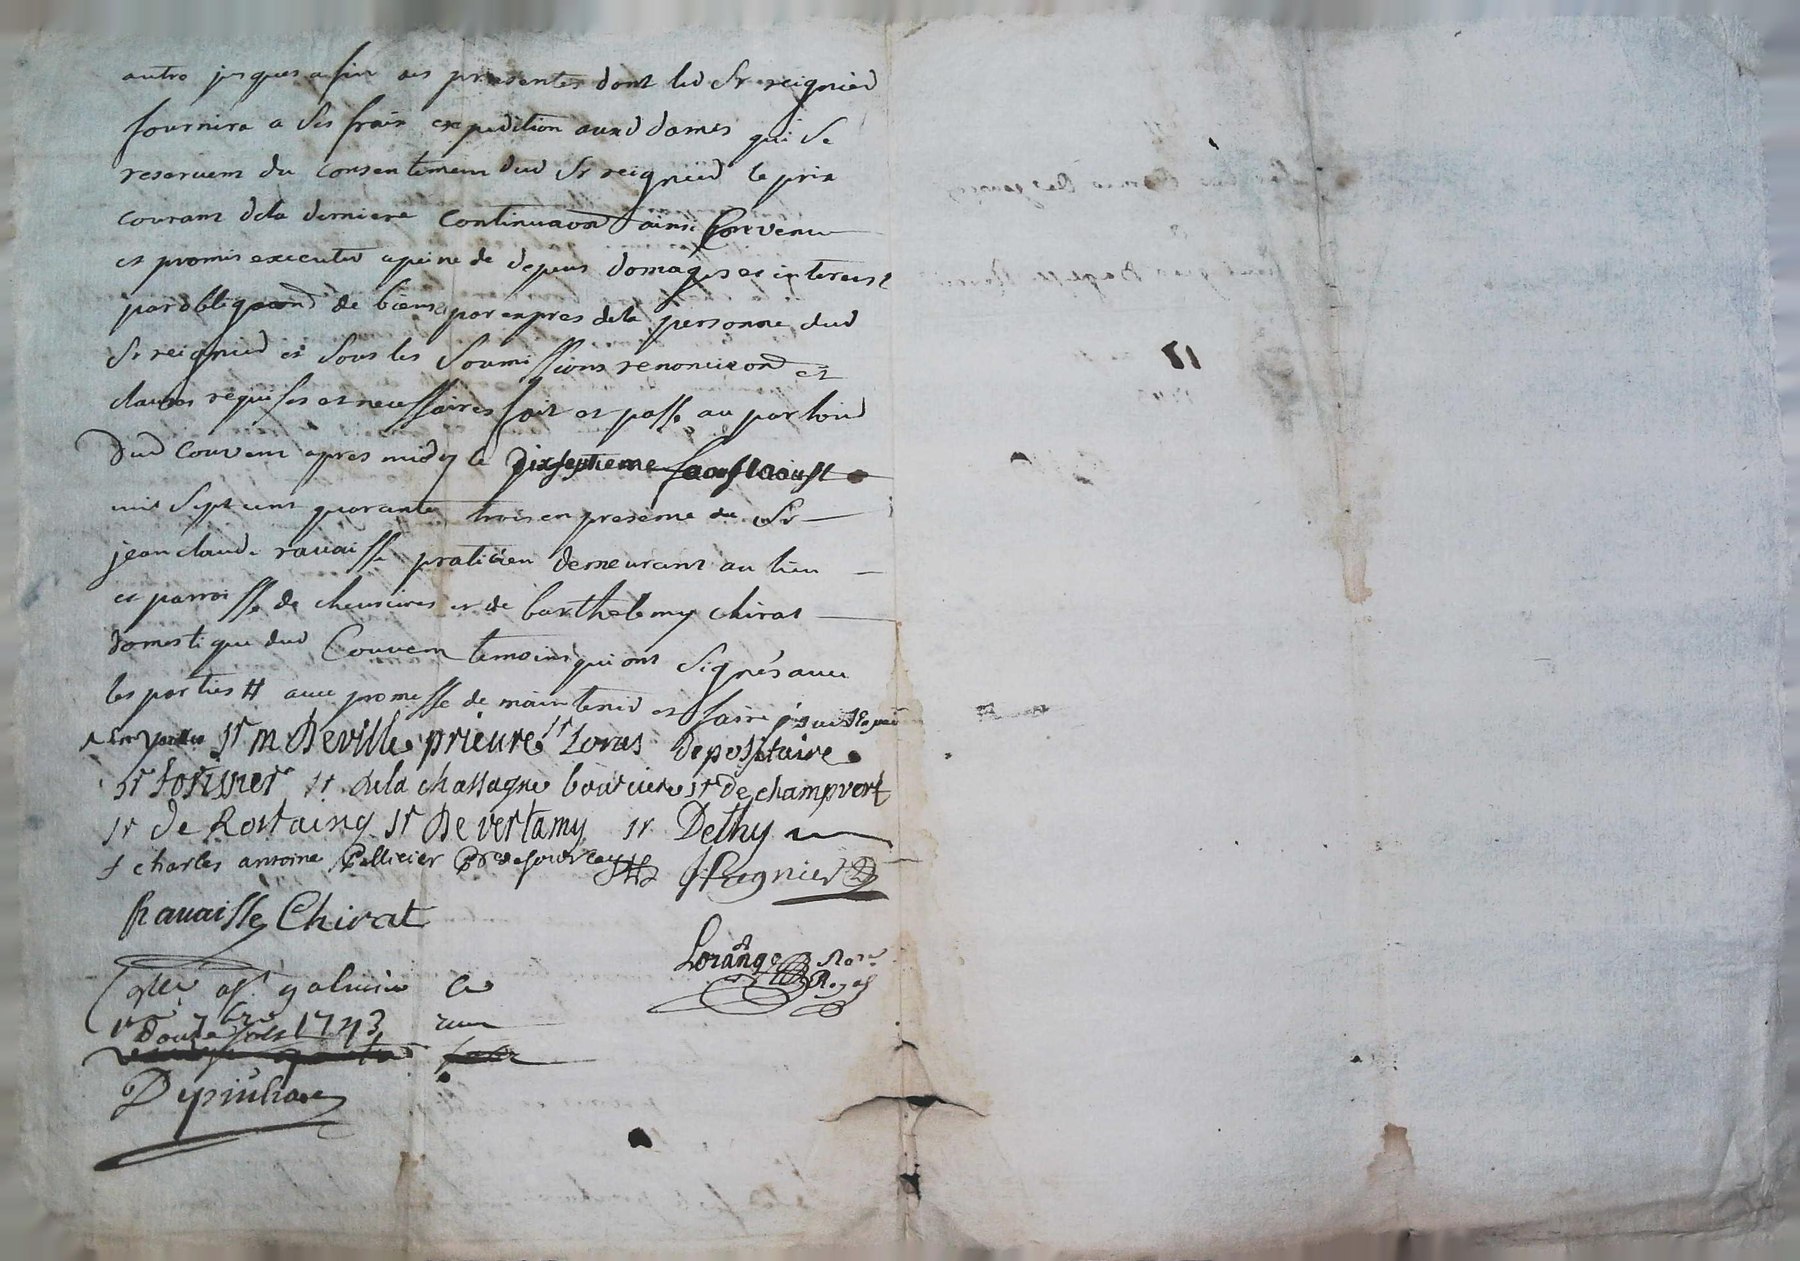 autre jusques a fin des presentes dont led Sr reignied
fournira a ses frais expedition auxd dames qui se
reservent du consentement dud Sr reignied le prix
courant dela derniere Continuaon ainsi Convenu
et promis executer a peine de depens domages et interests
par obligaond de biens par expres dela personne dud
Sr reignied et sous les soumissions renonciaond et
clauses requises et necessaires fait et passé au parloir
Dud Couvent apres midy le Dixseptieme aoust
mil sept cent quarante trois en presence du Sr
jean claude ravaisse praticien demeurant au lieu
et parroisse de chevrieres et de barthelemy chirat
domestique dud Couvent temoins qui ont Signés avec
les parties # avec promesse de maintenir et faire
Sr m Deville prieure Sr Loras depositaire
Sr forissier Sr dela chassagne boutciere Sr de champvert
Sr de Rostaing Sr De vertamy Sr Dethy
f charles antoine Pellicier
Regnier
Ravaisse Chirat
Lorange Nore
Royal
galmier Ce
Douze sols 1743